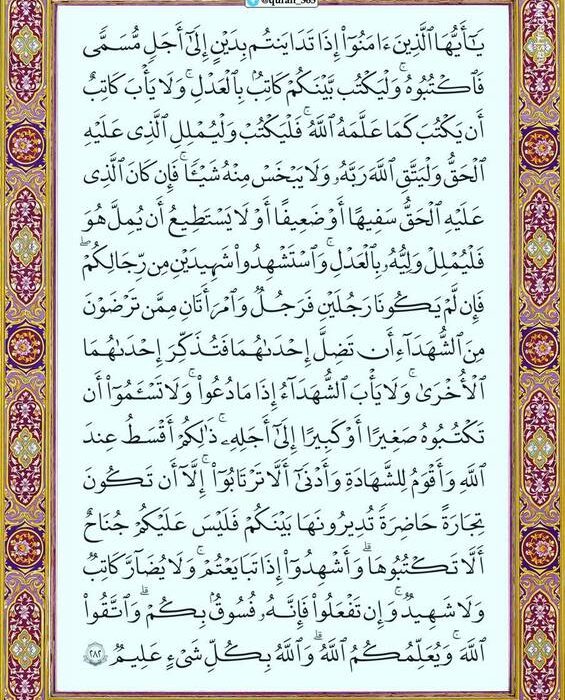 @quran_365
يَـٰٓأَيُّهَا ٱلَّذِينَ ءَامَنُوٓا۟ إِذَا تَدَايَنتُم بِدَيْنٍ إِلَىٰٓ أَجَلٍ مُّسَمًّى
فَٱكْتُبُوهُ ۚ وَلْيَكْتُب بَّيْنَكُمْ كَاتِبٌۢ بِٱلْعَدْلِ ۚ وَلَا يَأْبَ كَاتِبٌ
أَن يَكْتُبَ كَمَا عَلَّمَهُ ٱللَّهُ ۚ فَلْيَكْتُبْ وَلْيُمْلِلِ ٱلَّذِى عَلَيْهِ
ٱلْحَقُّ وَلْيَتَّقِ ٱللَّهَ رَبَّهُۥ وَلَا يَبْخَسْ مِنْهُ شَيْـًٔا ۚ فَإِن كَانَ ٱلَّذِى
عَلَيْهِ ٱلْحَقُّ سَفِيهًا أَوْ ضَعِيفًا أَوْ لَا يَسْتَطِيعُ أَن يُمِلَّ هُوَ
فَلْيُمْلِلْ وَلِيُّهُۥ بِٱلْعَدْلِ ۚ وَٱسْتَشْهِدُوا۟ شَهِيدَيْنِ مِن رِّجَالِكُمْ ۖ
فَإِن لَّمْ يَكُونَا رَجُلَيْنِ فَرَجُلٌ وَٱمْرَأَتَانِ مِمَّن تَرْضَوْنَ
مِنَ ٱلشُّهَدَآءِ أَن تَضِلَّ إِحْدَىٰهُمَا فَتُذَكِّرَ إِحْدَىٰهُمَا
ٱلْأُخْرَىٰ ۚ وَلَا يَأْبَ ٱلشُّهَدَآءُ إِذَا مَا دُعُوا۟ ۚ وَلَا تَسْـَٔمُوٓا۟ أَن
تَكْتُبُوهُ صَغِيرًا أَوْ كَبِيرًا إِلَىٰٓ أَجَلِهِۦ ۚ ذَٰلِكُمْ أَقْسَطُ عِندَ
ٱللَّهِ وَأَقْوَمُ لِلشَّهَـٰدَةِ وَأَدْنَىٰٓ أَلَّا تَرْتَابُوٓا۟ ۖ إِلَّآ أَن تَكُونَ
تِجَـٰرَةً حَاضِرَةً تُدِيرُونَهَا بَيْنَكُمْ فَلَيْسَ عَلَيْكُمْ جُنَاحٌ
أَلَّا تَكْتُبُوهَا ۗ وَأَشْهِدُوٓا۟ إِذَا تَبَايَعْتُمْ ۚ وَلَا يُضَآرَّ كَاتِبٌ
وَلَا شَهِيدٌ ۚ وَإِن تَفْعَلُوا۟ فَإِنَّهُۥ فُسُوقٌۢ بِكُمْ ۗ وَٱتَّقُوا۟
ٱللَّهَ ۖ وَيُعَلِّمُكُمُ ٱللَّهُ ۗ وَٱللَّهُ بِكُلِّ شَىْءٍ عَلِيمٌ ٢٨٢